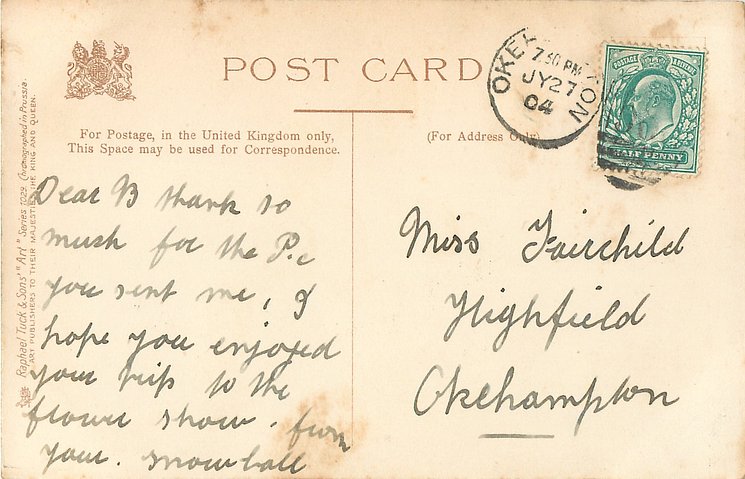 POST CARD
For Postage, in the United Kingdom only,
This Space may be used for Correspondence.
(For Address Only)
Raphael Tuck & Sons' "Art" Series 1029. Chromographed in Prussia
ART PUBLISHERS TO THEIR MAJESTIES THE KING AND QUEEN.
Dear B thank so
mush for the P.c
you sent me, I
hope you enjoyed
your trip to the
flower show. from
your. snowball
OKEHAMPTON
7.30 PM
JY 27
04
POSTAGE
HALF PENNY
Miss Fairchild
Highfield
Okehampton